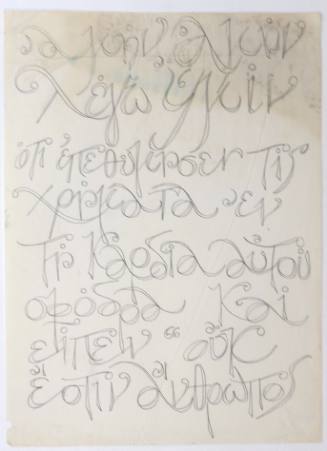 ἀμὴν ἀμὴν
λέγω ὑμῖν
ὅτι ἐπεθύμησεν τις
χρήματα ἐν
τῇ καρδίᾳ αὐτοῦ
σφόδρα καὶ
εἶπεν “οὐκ
ἔστιν ἄνθρωπος